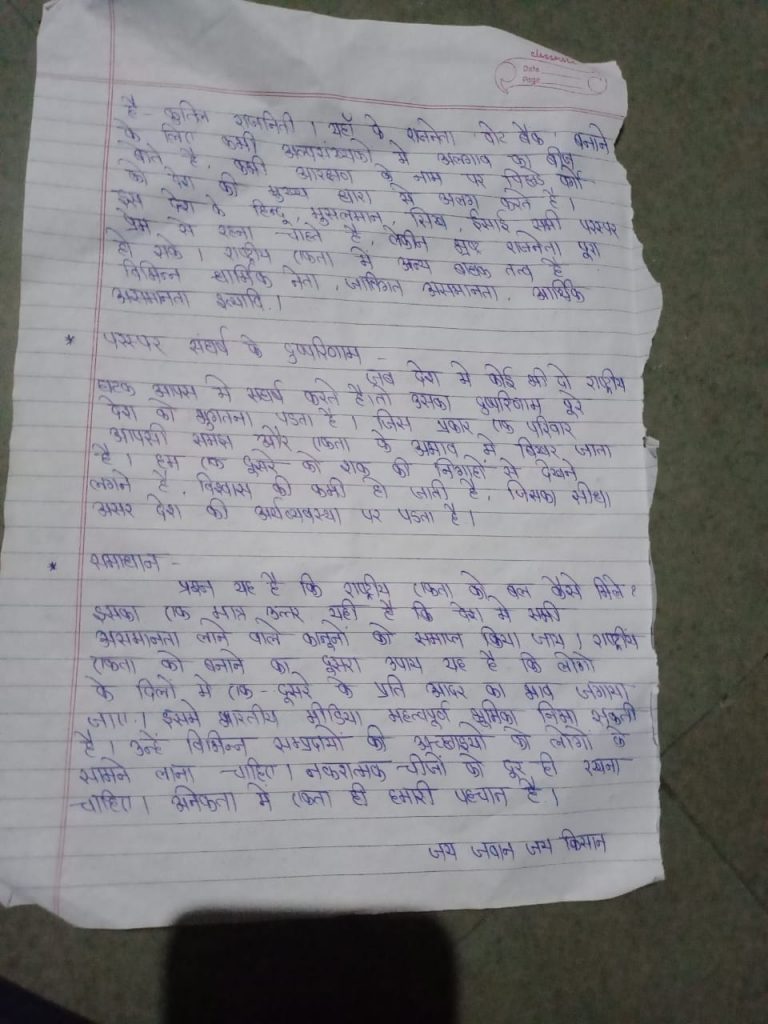 classmate
Date
Page
है - कुटिल राजनिती । यहाँ के राजनेता वोट बैंक बनाने
के लिए कभी अल्पसंख्यको में अलगाव का बीज
बोते है, कभी आरक्षण के नाम पर पिछडे वर्गो
को देश की मुख्य धारा से अलग करते है ।
इस देश के हिन्दू, मुसलमान, सिख, ईसाई सभी परस्पर
प्रेम से रहना चाहते है, लेकीन भ्रष्ट राजनेता पूरा
हो सके । राष्ट्रीय एकता में अन्य बाधक तत्व है
विभिन्न धार्मिक नेता, जातिगत असमानता, आर्थिक
असमानता इत्यादि ।
* परस्पर संघर्ष के दुष्परिणाम -
जब देश में कोई भी दो राष्ट्रीय
घटक आपस मे संघर्ष करते है। तो उसका दुष्परिणाम पूरे
देश को भुगतना पडता है । जिस प्रकार एक परिवार
आपसी समझ और एकता के अभाव में बिखर जाता
है । हम एक दूसरे को शक की निगाहो से देखने
लगते है, विश्वास की कमी हो जाती है, जिसका सीधा
असर देश की अर्थव्यवस्था पर पडता है ।
* समाधान -
प्रश्न यह है कि राष्ट्रीय एकता को बल कैसे मिले ?
इसका एक मात्र उत्तर यही है कि देश मे सभी
असमानता लाने वाले कानूनो को समाप्त किया जाय । राष्ट्रीय
एकता को बनाने का दुसरा उपाय यह है कि लोगो
के दिलों मे एक - दूसरे के प्रति आदर का भाव जगाया
जाए । इसमे भारतीय मीडिया महत्वपूर्ण भूमिका निभा सकती
है । उन्हें विभिन्न सम्प्रदायों की अच्छाइयो को लोगों के
सामने लाना चाहिए । नकरात्मक चीजों को दूर ही रखना
चाहिए । अनेकता में एकता ही हमारी पहचान है ।
जय जवान जय किसान